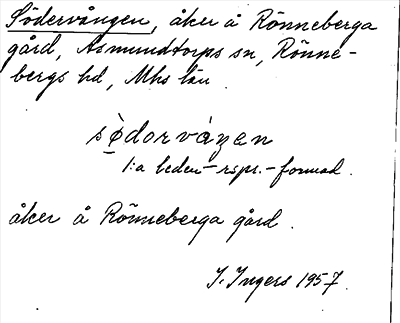 Södervången, åker å Rönneberga
gård, Asmundtorps sn, Rönne-
bergs hd, Mhs län
södorváŋen
1:a leden = rspr.-formad.
åker å Rönneberga gård.
I. Ingers 1957.